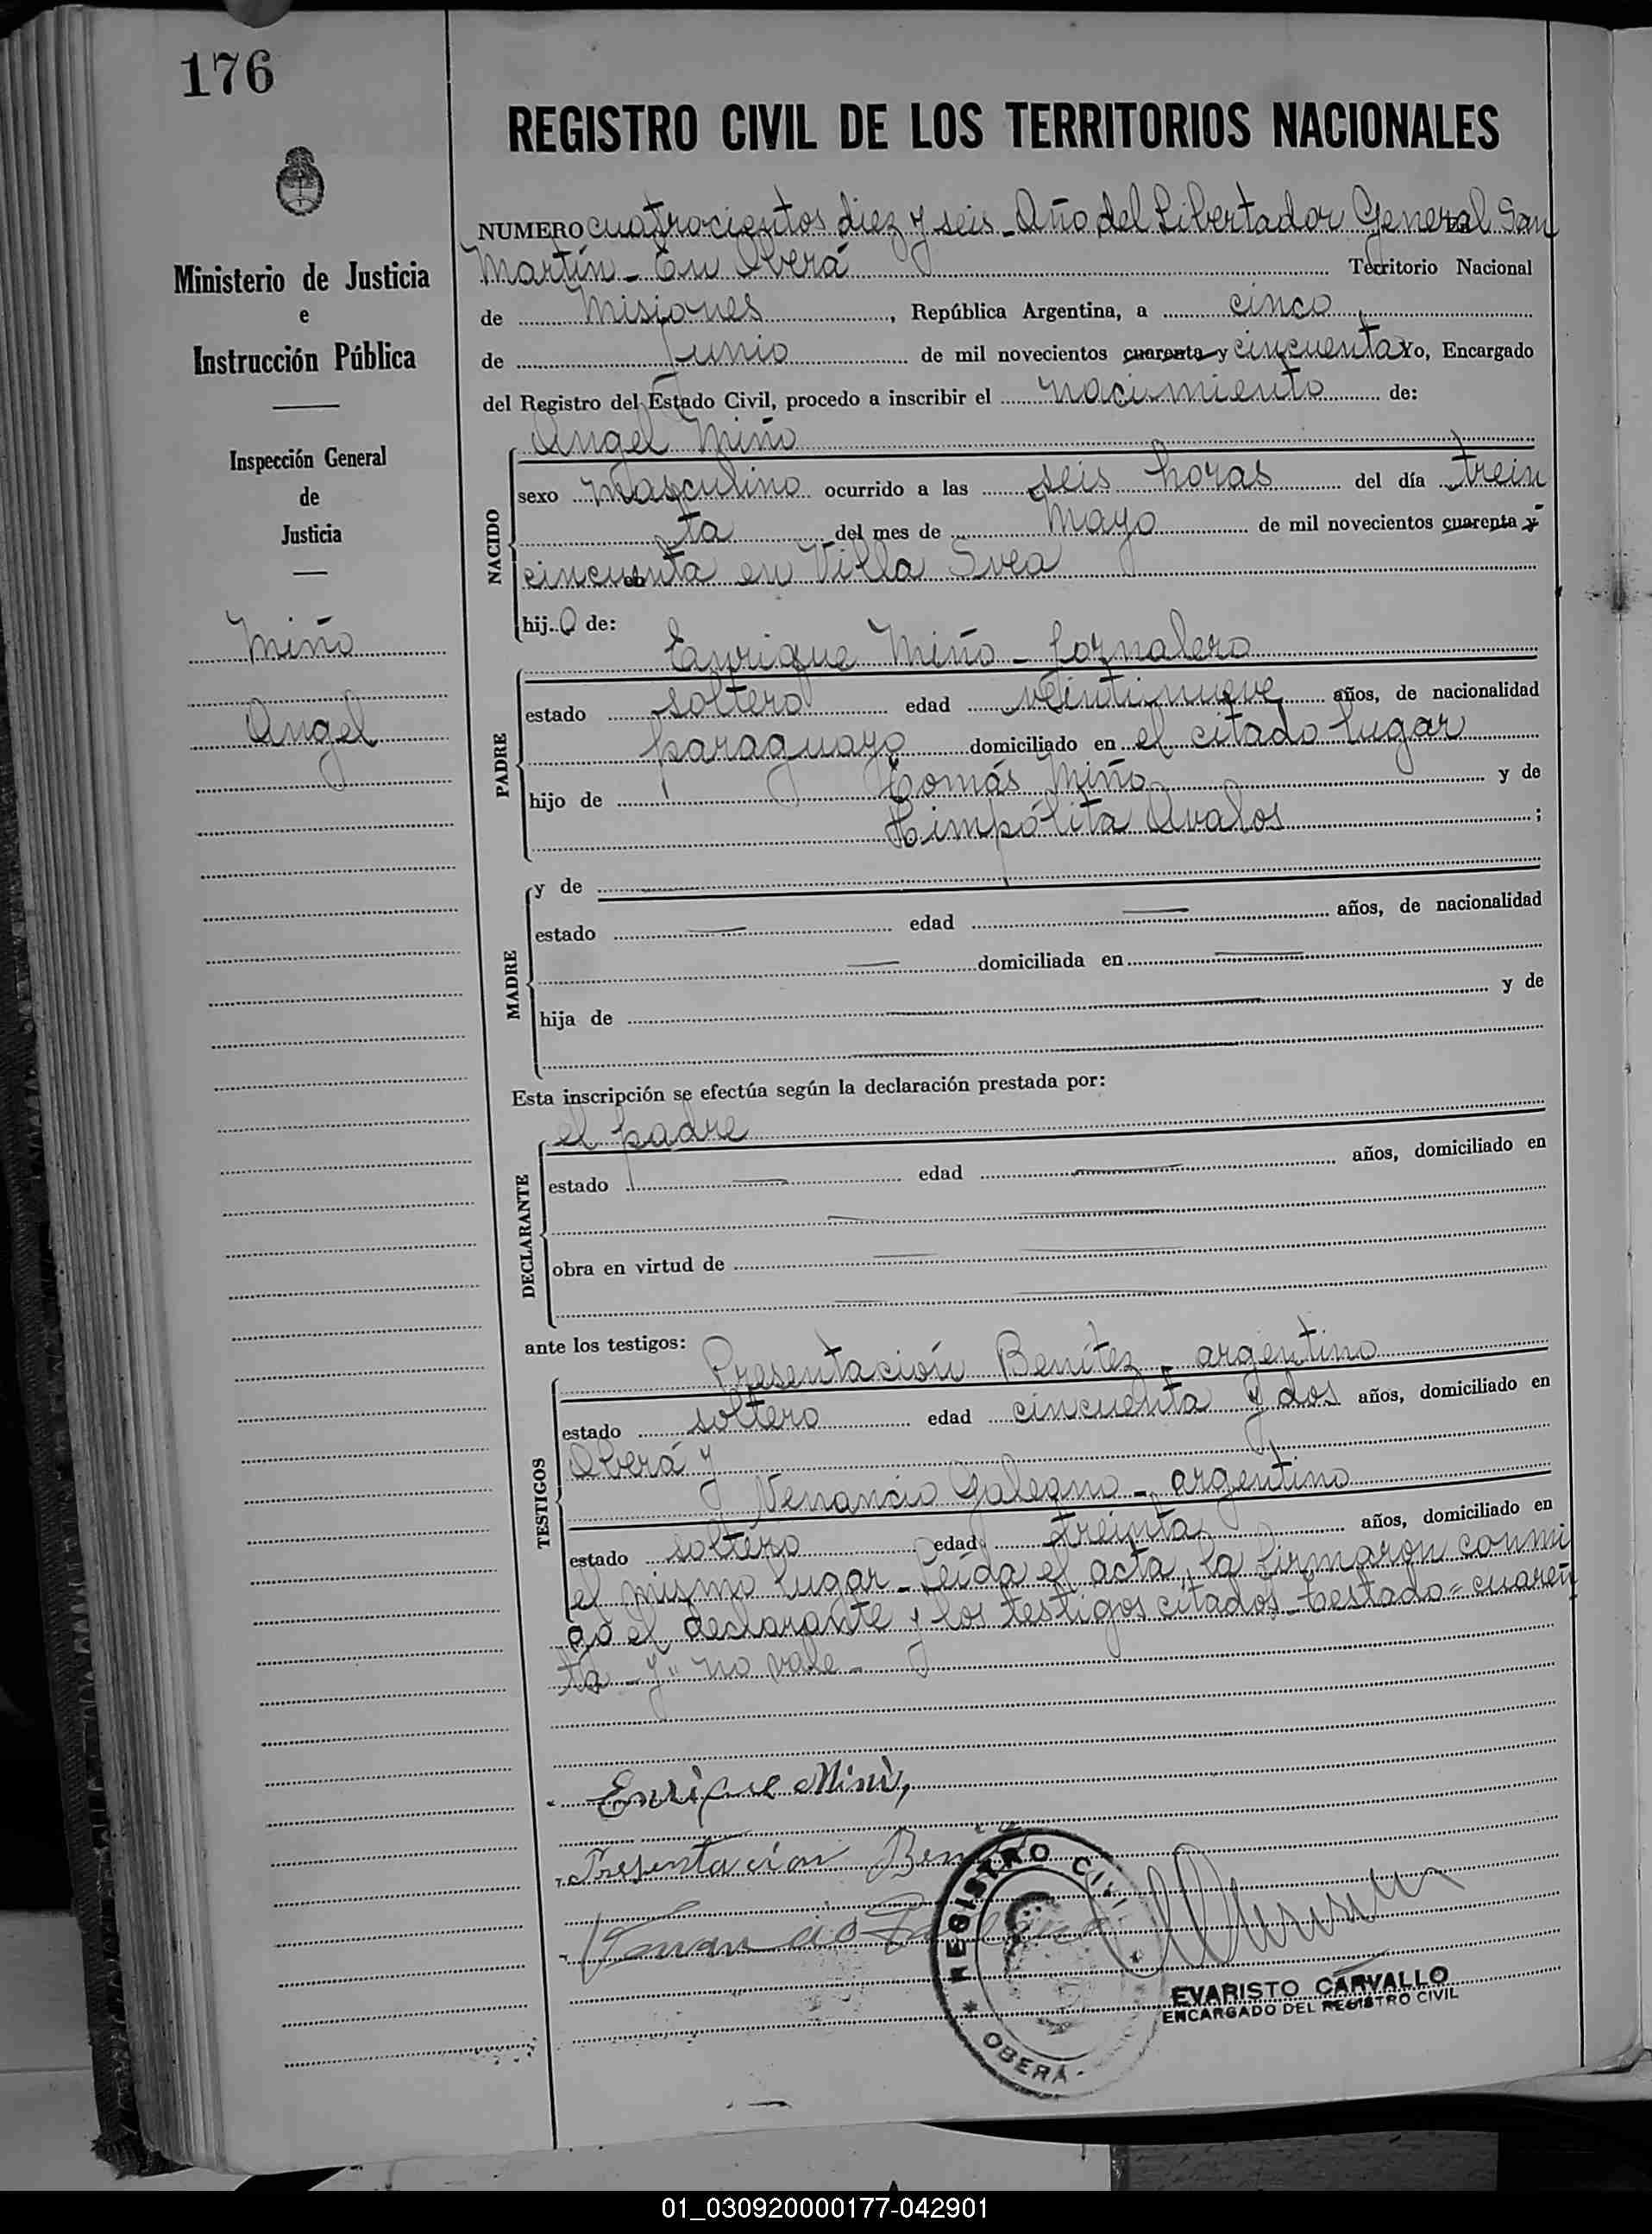 176
REGISTRO CIVIL DE LOS TERRITORIOS NACIONALES
Ministerio de Justicia
e
Instrucción Pública
Inspección General
de
Justicia
Miño
Angel
NUMERO cuatrocientos diez y seis - Año del Libertador General San
Martín - En Oberá Territorio Nacional
de Misiones, República Argentina, a cinco
de Junio de mil novecientos cuarenta y cincuenta Yo, Encargado
del Registro del Estado Civil, procedo a inscribir el nacimiento de:
NACIDO
Angel Miño
sexo masculino ocurrido a las seis horas del día trein
ta del mes de Mayo de mil novecientos cuarenta y
cincuenta en Villa Svea
hijo de:
PADRE
Enrique Miño - Jornalero
estado soltero edad veintinueve años, de nacionalidad
paraguayo domiciliado en el citado lugar
hijo de Tomás Miño y de
Himpólita Avalos ;
MADRE
y de
estado edad años, de nacionalidad
domiciliada en
hija de y de
Esta inscripción se efectúa según la declaración prestada por:
DECLARANTE
el padre
estado edad años, domiciliado en
obra en virtud de
ante los testigos:
TESTIGOS
Presentación Benítez - argentino
estado soltero edad cincuenta y dos años, domiciliado en
Oberá y
Venancio Galeano - argentino
estado soltero edad treinta años, domiciliado en
el mismo lugar - Leída el acta, la firmaron conmi
go el declarante y los testigos citados - Testado = cuaren
ta - y" no vale -
Enrique Miño
Presentacion Benitez
Venancio Galeano
REGISTRO CIVIL
OBERÁ
EVARISTO CARVALLO
ENCARGADO DEL REGISTRO CIVIL
01_030920000177-042901